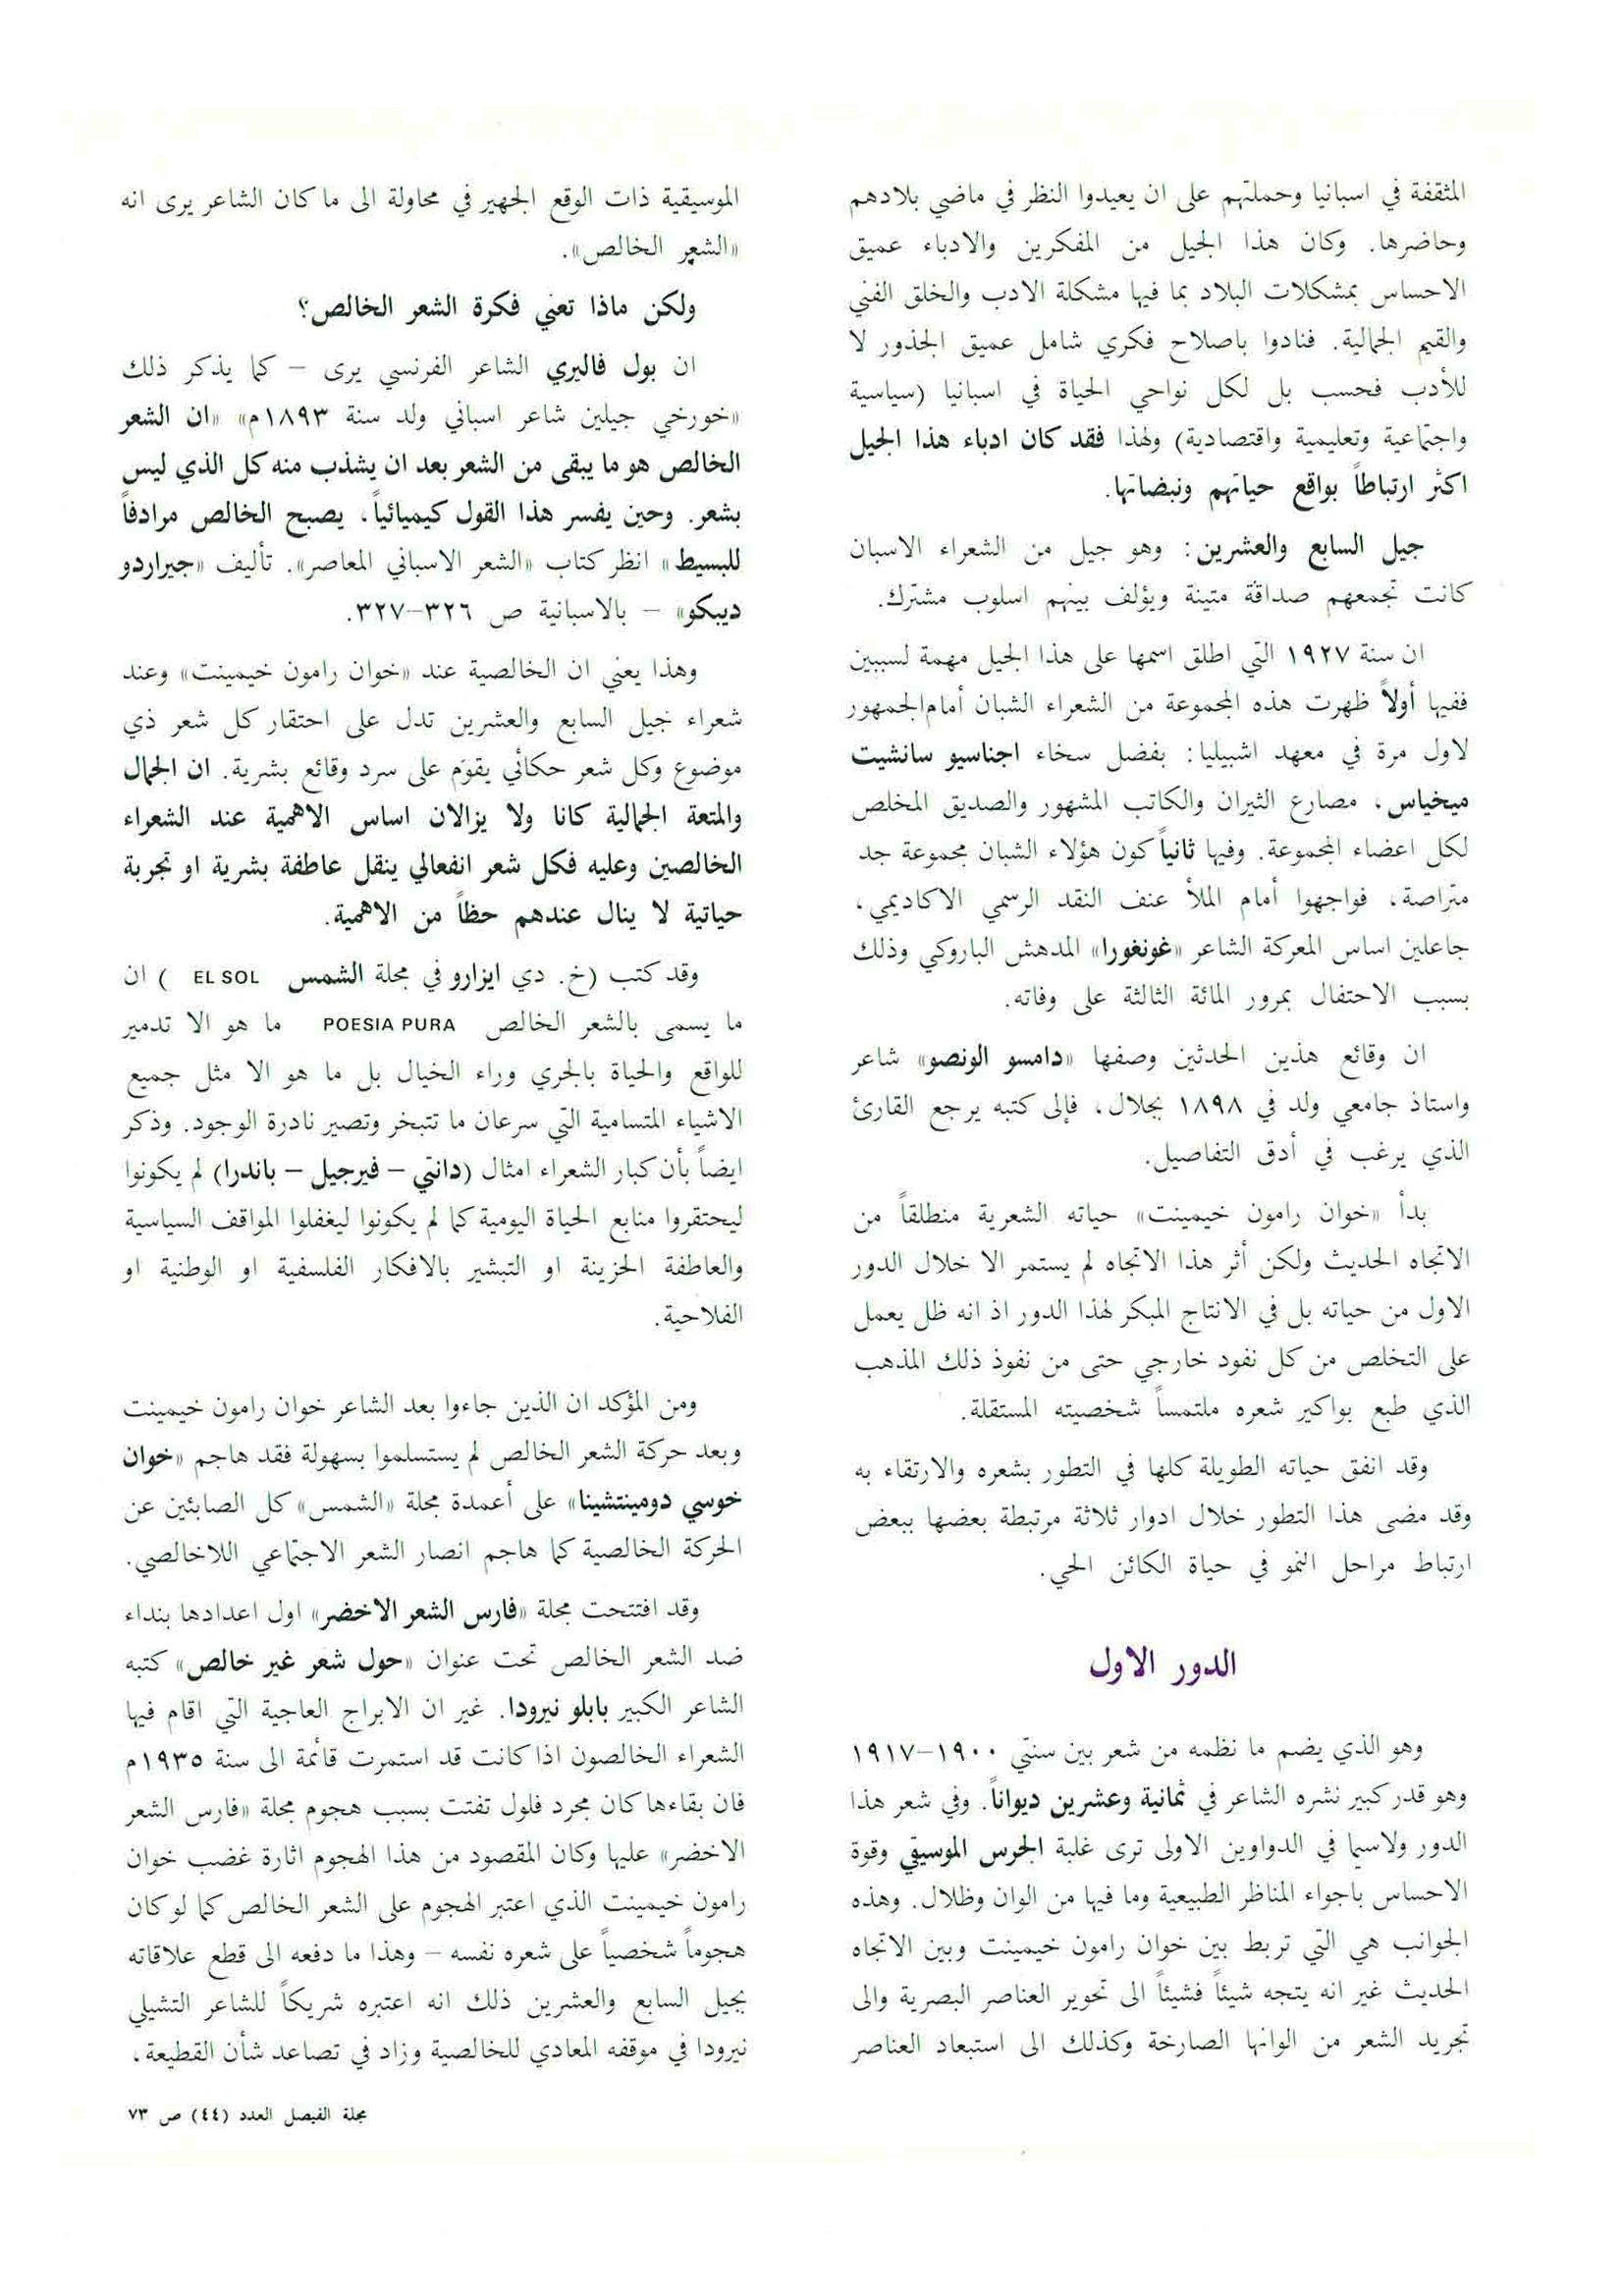 المثقفة في اسبانيا وحملتهم على ان يعيدوا النظر في ماضي بلادهم
وحاضرها. وكان هذا الجيل من المفكرين والادباء عميق
الاحساس بمشكلات البلاد بما فيها مشكلة الادب والخلق الفني
والقيم الجمالية. فنادوا باصلاح فكري شامل عميق الجذور لا
للأدب فحسب بل لكل نواحي الحياة في اسبانيا (سياسية
واجتماعية وتعليمية واقتصادية) ولهذا فقد كان ادباء هذا الجيل
اكثر ارتباطاً بواقع حياتهم ونبضاتها.
جيل السابع والعشرين: وهو جيل من الشعراء الاسبان
كانت تجمعهم صداقة متينة ويؤلف بينهم اسلوب مشترك.
ان سنة ١٩٢٧ التي اطلق اسمها على هذا الجيل مهمة لسببين
ففيها أولاً ظهرت هذه المجموعة من الشعراء الشبان أمام الجمهور
لاول مرة في معهد اشبيليا: بفضل سخاء اجناسيو سانشيت
ميخياس، مصارع الثيران والكاتب المشهور والصديق المخلص
لكل اعضاء المجموعة. وفيها ثانياً كون هؤلاء الشبان مجموعة جد
متراصة، فواجهوا أمام الملأ عنف النقد الرسمي الاكاديمي،
جاعلين اساس المعركة الشاعر «غونغورا» المدهش الباروكي وذلك
بسبب الاحتفال بمرور المائة الثالثة على وفاته.
ان وقائع هذين الحدثين وصفها «دامسو الونصو» شاعر
واستاذ جامعي ولد في ١٨٩٨ بجلال، فإلى كتبه يرجع القارئ
الذي يرغب في أدق التفاصيل.
بدأ «خوان رامون خيمينت» حياته الشعرية منطلقاً من
الاتجاه الحديث ولكن أثر هذا الاتجاه لم يستمر الا خلال الدور
الاول من حياته بل في الانتاج المبكر لهذا الدور اذ انه ظل يعمل
على التخلص من كل نفود خارجي حتى من نفوذ ذلك المذهب
الذي طبع بواكير شعره ملتمساً شخصيته المستقلة.
وقد انفق حياته الطويلة كلها في التطور بشعره والارتقاء به
وقد مضى هذا التطور خلال ادوار ثلاثة مرتبطة بعضها ببعض
ارتباط مراحل النمو في حياة الكائن الحي.
الدور الاول
وهو الذي يضم ما نظمه من شعر بين سنتي ١٩٠٠–١٩١٧
وهو قدر كبير نشره الشاعر في ثمانية وعشرين ديواناً. وفي شعر هذا
الدور ولاسيما في الدواوين الاولى ترى غلبة الجرس الموسيقي وقوة
الاحساس باجواء المناظر الطبيعية وما فيها من الوان وظلال. وهذه
الجوانب هي التي تربط بين خوان رامون خيمينت وبين الاتجاه
الحديث غير انه يتجه شيئاً فشيئاً الى تحوير العناصر البصرية والى
تجريد الشعر من الوانها الصارخة وكذلك الى استبعاد العناصر
الموسيقية ذات الوقع الجهير في محاولة الى ما كان الشاعر يرى انه
«الشعر الخالص».
ولكن ماذا تعني فكرة الشعر الخالص؟
ان بول فاليري الشاعر الفرنسي يرى – كما يذكر ذلك
«خورخي جيلين شاعر اسباني ولد سنة ١٨٩٣م» «ان الشعر
الخالص هو ما يبقى من الشعر بعد ان يشذب منه كل الذي ليس
بشعر. وحين يفسر هذا القول كيميائياً، يصبح الخالص مرادفاً
للبسيط» انظر كتاب «الشعر الاسباني المعاصر». تأليف «جيراردو
ديبكو» – بالاسبانية ص ٣٢٦–٣٢٧.
وهذا يعني ان الخالصية عند «خوان رامون خيمينت» وعند
شعراء جيل السابع والعشرين تدل على احتقار كل شعر ذي
موضوع وكل شعر حكائي يقوم على سرد وقائع بشرية. ان الجمال
والمتعة الجمالية كانا ولا يزالان اساس الاهمية عند الشعراء
الخالصين وعليه فكل شعر انفعالي ينقل عاطفة بشرية او تجربة
حياتية لا ينال عندهم حظاً من الاهمية.
وقد كتب (خ. دي ايزارو في مجلة الشمس EL SOL ) ان
ما يسمى بالشعر الخالص POESIA PURA ما هو الا تدمير
للواقع والحياة بالجري وراء الخيال بل ما هو الا مثل جميع
الاشياء المتسامية التي سرعان ما تتبخر وتصير نادرة الوجود. وذكر
ايضاً بأن كبار الشعراء امثال (دانتي – فيرجيل – باندرا) لم يكونوا
ليحتقروا منابع الحياة اليومية كما لم يكونوا ليغفلوا المواقف السياسية
والعاطفة الحزينة او التبشير بالافكار الفلسفية او الوطنية او
الفلاحية.
ومن المؤكد ان الذين جاءوا بعد الشاعر خوان رامون خيمينت
وبعد حركة الشعر الخالص لم يستسلموا بسهولة فقد هاجم «خوان
خوسي دومينتشينا» على أعمدة مجلة «الشمس» كل الصابئين عن
الحركة الخالصية كما هاجم انصار الشعر الاجتماعي اللاخالصي.
وقد افتتحت مجلة «فارس الشعر الاخضر» اول اعدادها بنداء
ضد الشعر الخالص تحت عنوان «حول شعر غير خالص» كتبه
الشاعر الكبير بابلو نيرودا. غير ان الابراج العاجية التي اقام فيها
الشعراء الخالصون اذا كانت قد استمرت قائمة الى سنة ١٩٣٥م
فان بقاءها كان مجرد فلول تفتت بسبب هجوم مجلة «فارس الشعر
الاخضر» عليها وكان المقصود من هذا الهجوم اثارة غضب خوان
رامون خيمينت الذي اعتبر الهجوم على الشعر الخالص كما لو كان
هجوماً شخصياً على شعره نفسه – وهذا ما دفعه الى قطع علاقاته
بجيل السابع والعشرين ذلك انه اعتبره شريكاً للشاعر التشيلي
نيرودا في موقفه المعادي للخالصية وزاد في تصاعد شأن القطيعة،
مجلة الفيصل العدد (٤٤) ص ٧٣